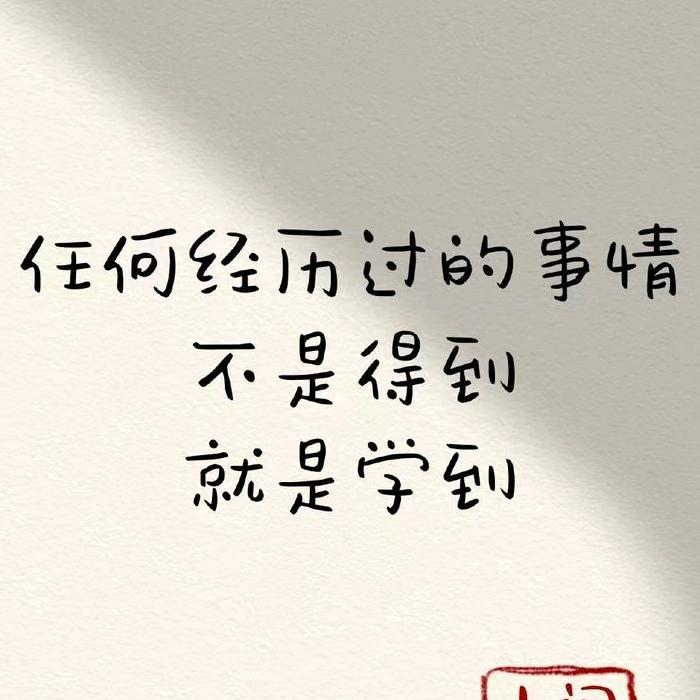 任何经历过的事情
不是得到
就是学到